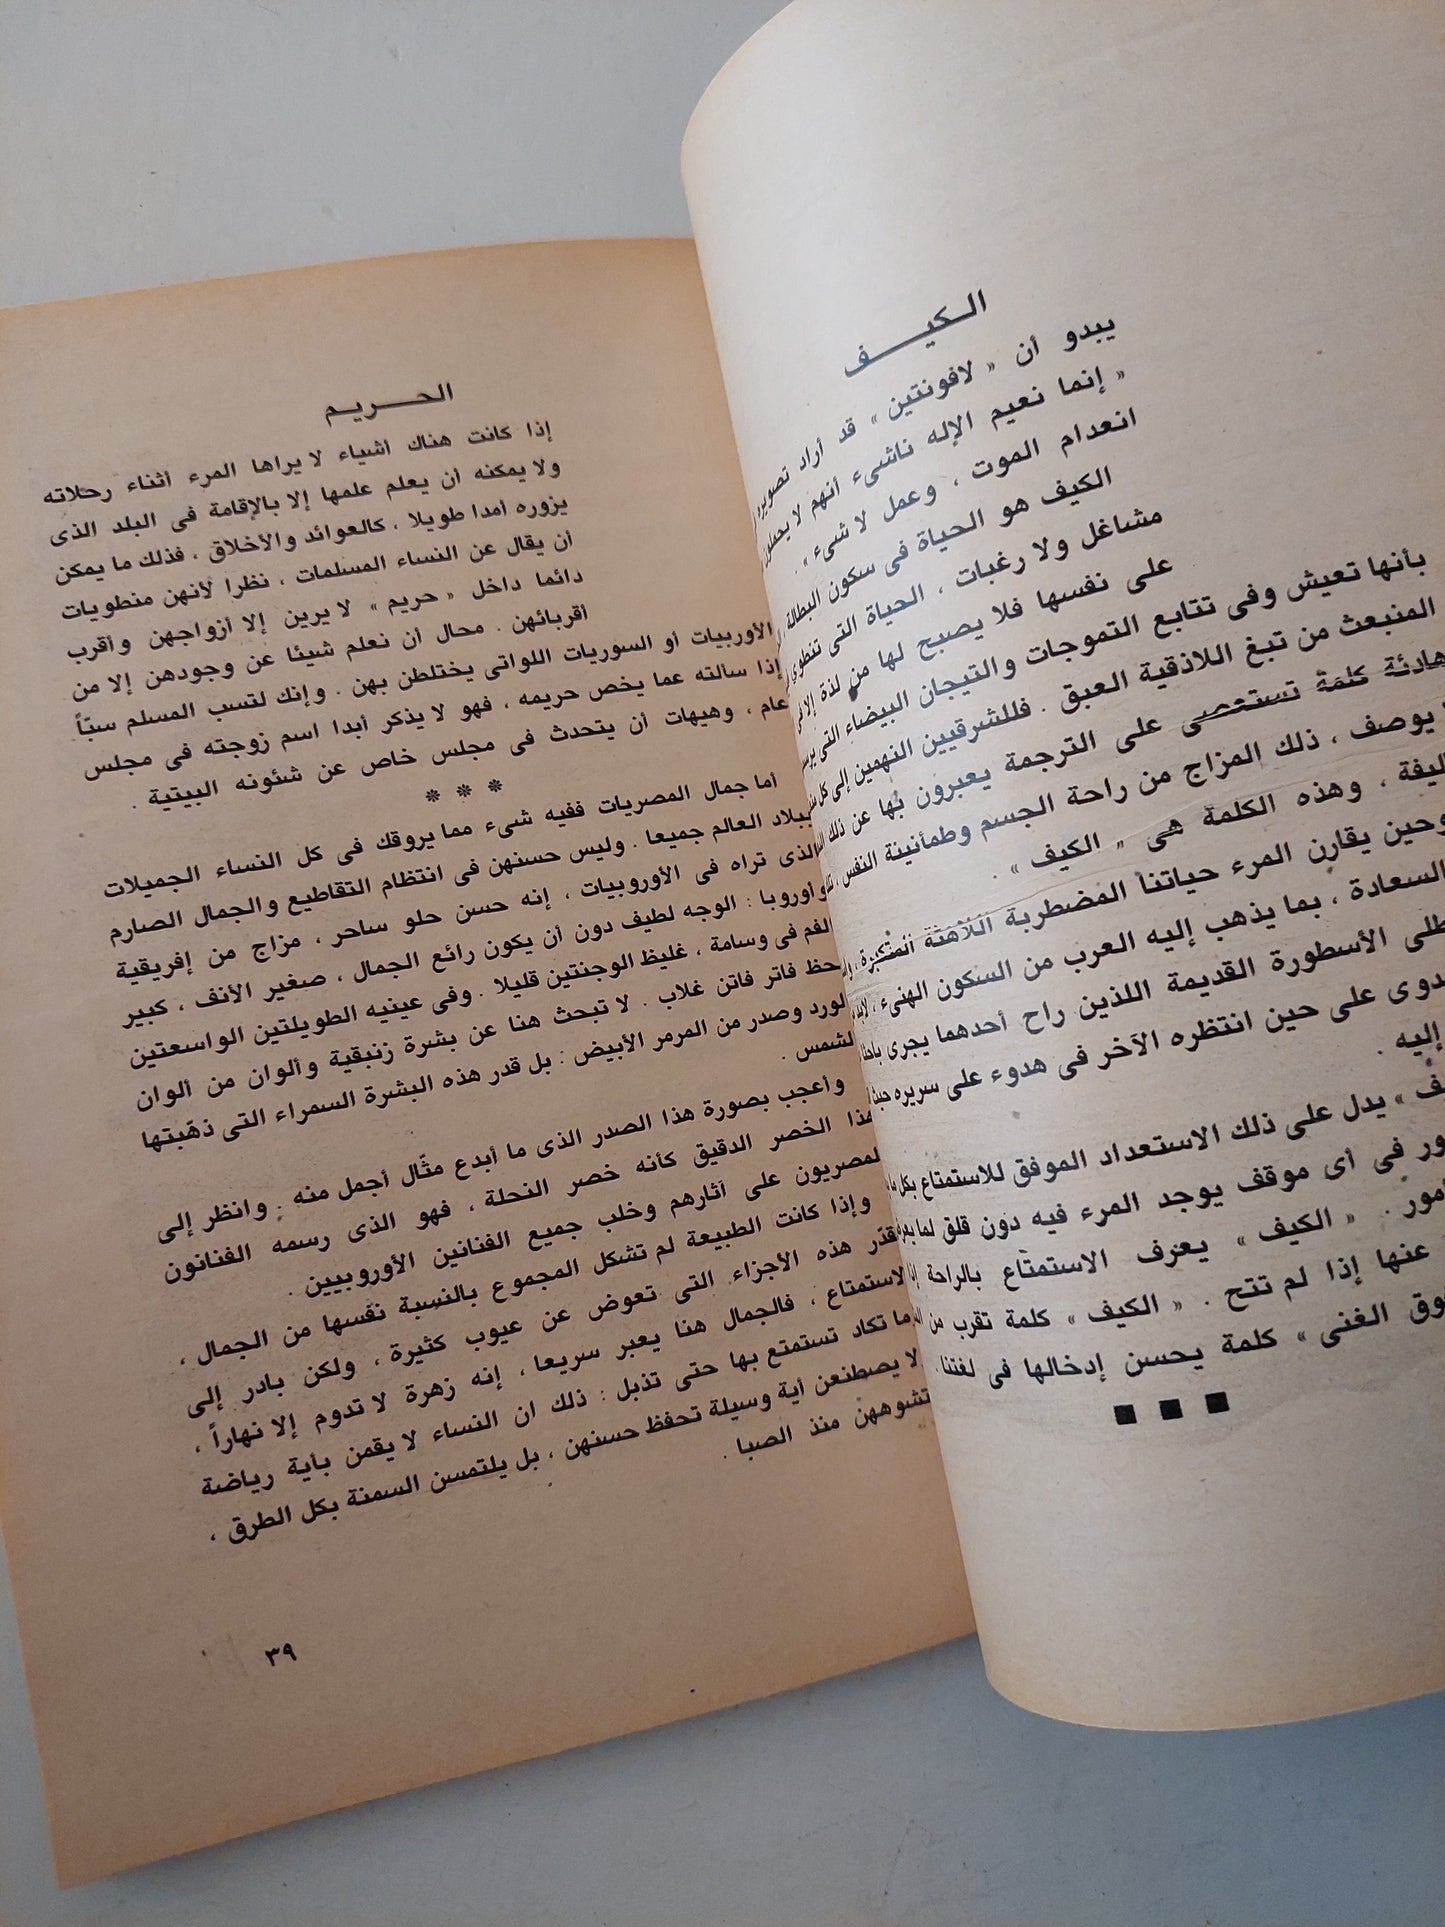 الكيف
يبدو أن « لافونتين » قد أراد تصوير
« إنما نعيم الإله ناشىء أنهم لا يحملون
انعدام الموت ، وعمل لا شىء » .
الكيف هو الحياة فى سكون البطالة
مشاغل ولا رغبات ، الحياة التى تنطوى
على نفسها فلا يصبح لها من لذة إلا
بأنها تعيش وفى تتابع التموجات والتيجان البيضاء التى
المنبعث من تبغ اللاذقية العبق . فللشرقيين النهمين إلى كل
هادئة كلمة تستعصى على الترجمة يعبرون بها عن ذلك
يوصف ، ذلك المزاج من راحة الجسم وطمأنينة النفس ،
وهذه الكلمة هى « الكيف » .
وحين يقارن المرء حياتنا المضطربة اللاهثة المتكبرة ،
السعادة ، بما يذهب إليه العرب من السكون الهنىء ،
الأسطورة القديمة اللذين راح أحدهما يجرى
على حين انتظره الآخر فى هدوء على سريره
إليه .
» يدل على ذلك الاستعداد الموفق للاستمتاع بكل
فى أى موقف يوجد المرء فيه دون قلق لما
. « الكيف » يعرف الاستمتاع بالراحة إذا
عنها إذا لم تتح . « الكيف » كلمة تقرب من
الغنى » كلمة يحسن إدخالها فى لغتنا .
الحريم
إذا كانت هناك أشياء لا يراها المرء أثناء رحلاته
ولا يمكنه أن يعلم علمها إلا بالإقامة فى البلد الذى
يزوره أمدا طويلا ، كالعوائد والأخلاق ، فذلك ما يمكن
أن يقال عن النساء المسلمات ، نظرا لأنهن منطويات
دائما داخل « حريم » لا يرين إلا أزواجهن وأقرب
أقربائهن . محال أن نعلم شيئا عن وجودهن إلا من
الأوربيات أو السوريات اللواتى يختلطن بهن . وإنك لتسب المسلم سبّاً
إذا سألته عما يخص حريمه ، فهو لا يذكر أبدا اسم زوجته فى مجلس
عام ، وهيهات أن يتحدث فى مجلس خاص عن شئونه البيتية .
* * *
أما جمال المصريات ففيه شىء مما يروقك فى كل النساء الجميلات
ببلاد العالم جميعا . وليس حسنهن فى انتظام التقاطيع والجمال الصارم
الذى تراه فى الأوروبيات ، إنه حسن حلو ساحر ، مزاج من إفريقية
وأوروبا : الوجه لطيف دون أن يكون رائع الجمال ، صغير الأنف ، كبير
الفم فى وسامة ، غليظ الوجنتين قليلا . وفى عينيه الطويلتين الواسعتين
لحظ فاتر فاتن غلاب . لا تبحث هنا عن بشرة زنبقية وألوان من ألوان
الورد وصدر من المرمر الأبيض : بل قدر هذه البشرة السمراء التى ذهّبتها
الشمس .
وأعجب بصورة هذا الصدر الذى ما أبدع مثّال أجمل منه . وانظر إلى
هذا الخصر الدقيق كأنه خصر النحلة ، فهو الذى رسمه الفنانون
المصريون على آثارهم وخلب جميع الفنانين الأوروبيين .
وإذا كانت الطبيعة لم تشكل المجموع بالنسبة نفسها من الجمال ،
قدّر هذه الأجزاء التى تعوض عن عيوب كثيرة ، ولكن بادر إلى
الاستمتاع ، فالجمال هنا يعبر سريعا ، إنه زهرة لا تدوم إلا نهاراً ،
ما تكاد تستمتع بها حتى تذبل : ذلك ان النساء لا يقمن بأية رياضة
لا يصطنعن أية وسيلة تحفظ حسنهن ، بل يلتمسن السمنة بكل الطرق ،
تشوههن منذ الصبا .
٣٩